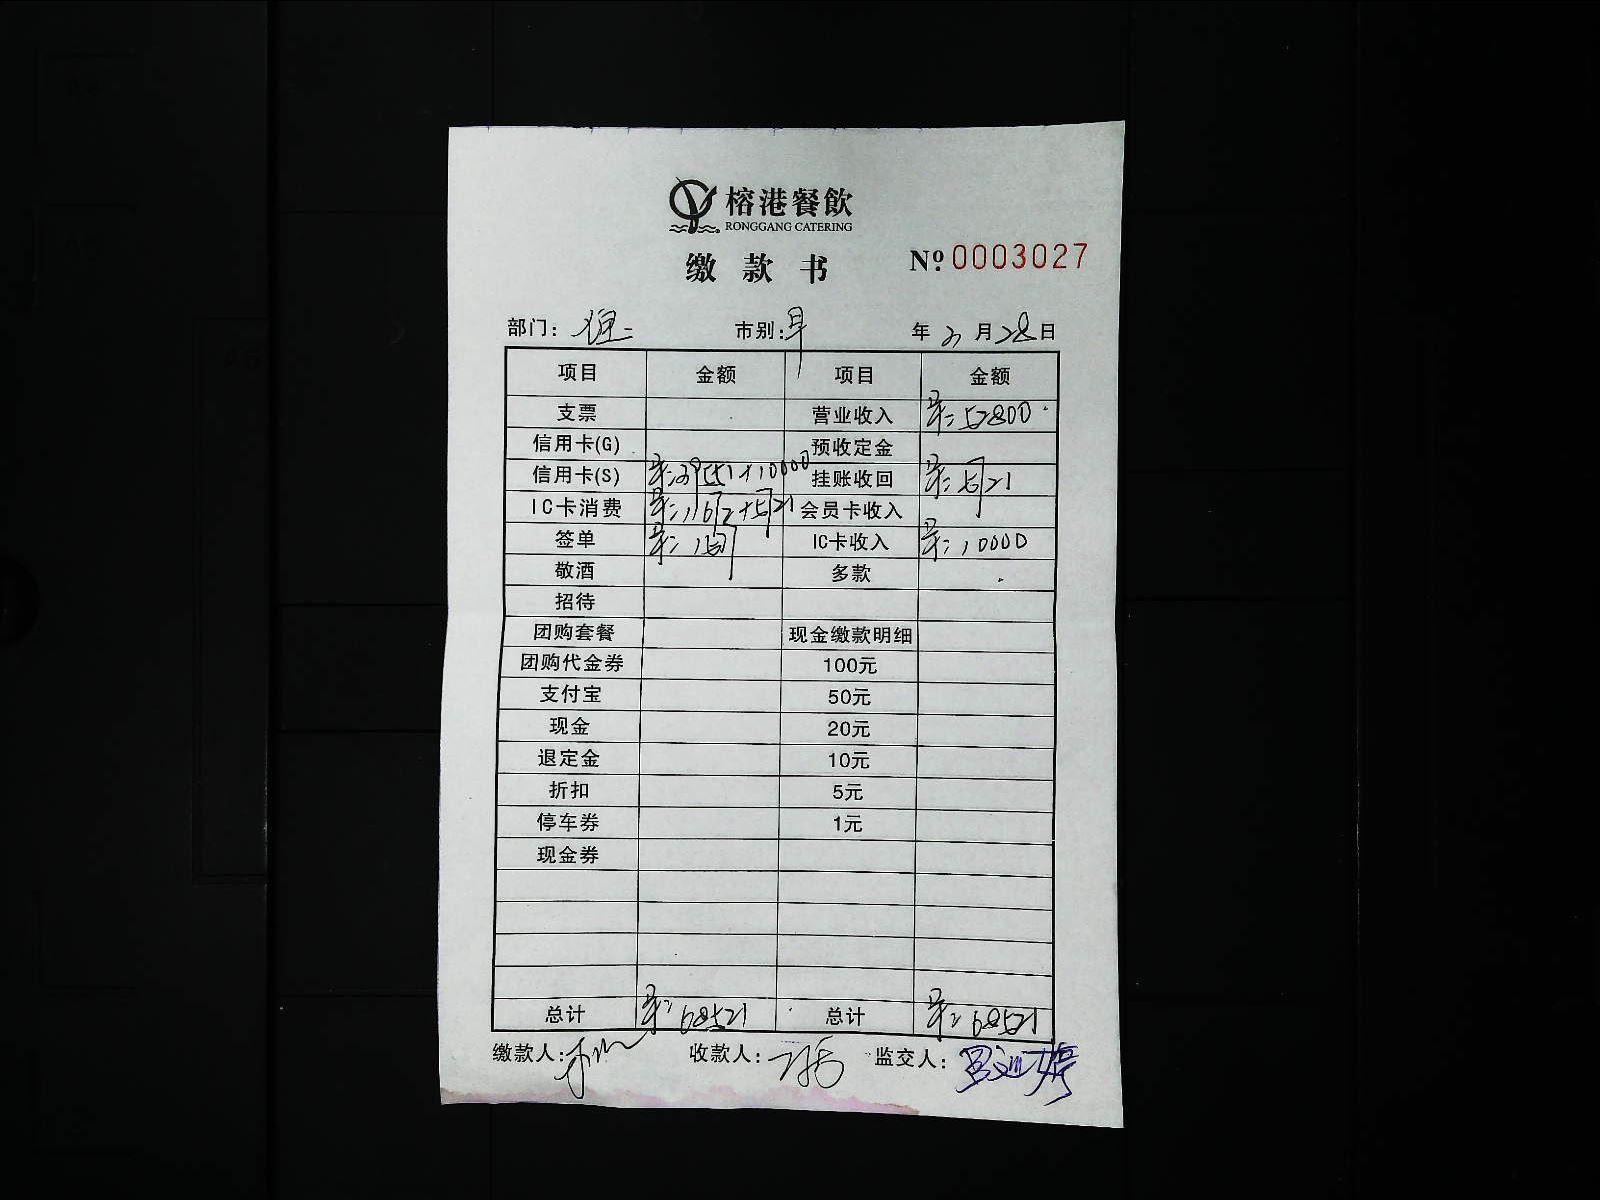 榕港餐飲
RONGGANG CATERING
缴款书 No.0003027
部门: 市别:早 年 2 月 28 日
项目 金额 项目 金额
支票 营业收入 早: 52800
信用卡(G) 预收定金
信用卡(S) 早: +10000 挂账收回 早: 5721
IC卡消费 早: +5721 会员卡收入
签单 早: IC卡收入 早: 10000
敬酒 多款
招待
团购套餐 现金缴款明细
团购代金券 100元
支付宝 50元
现金 20元
退定金 10元
折扣 5元
停车券 1元
现金券
总计 早: 68521 总计 早: 68521
缴款人: 收款人: 监交人: